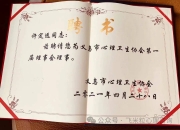 聘书
许定远同志：
兹聘请您为义乌市心理卫生协会第一
届理事会理事。
义乌市心理卫生协会
二零二一年四月二十八日